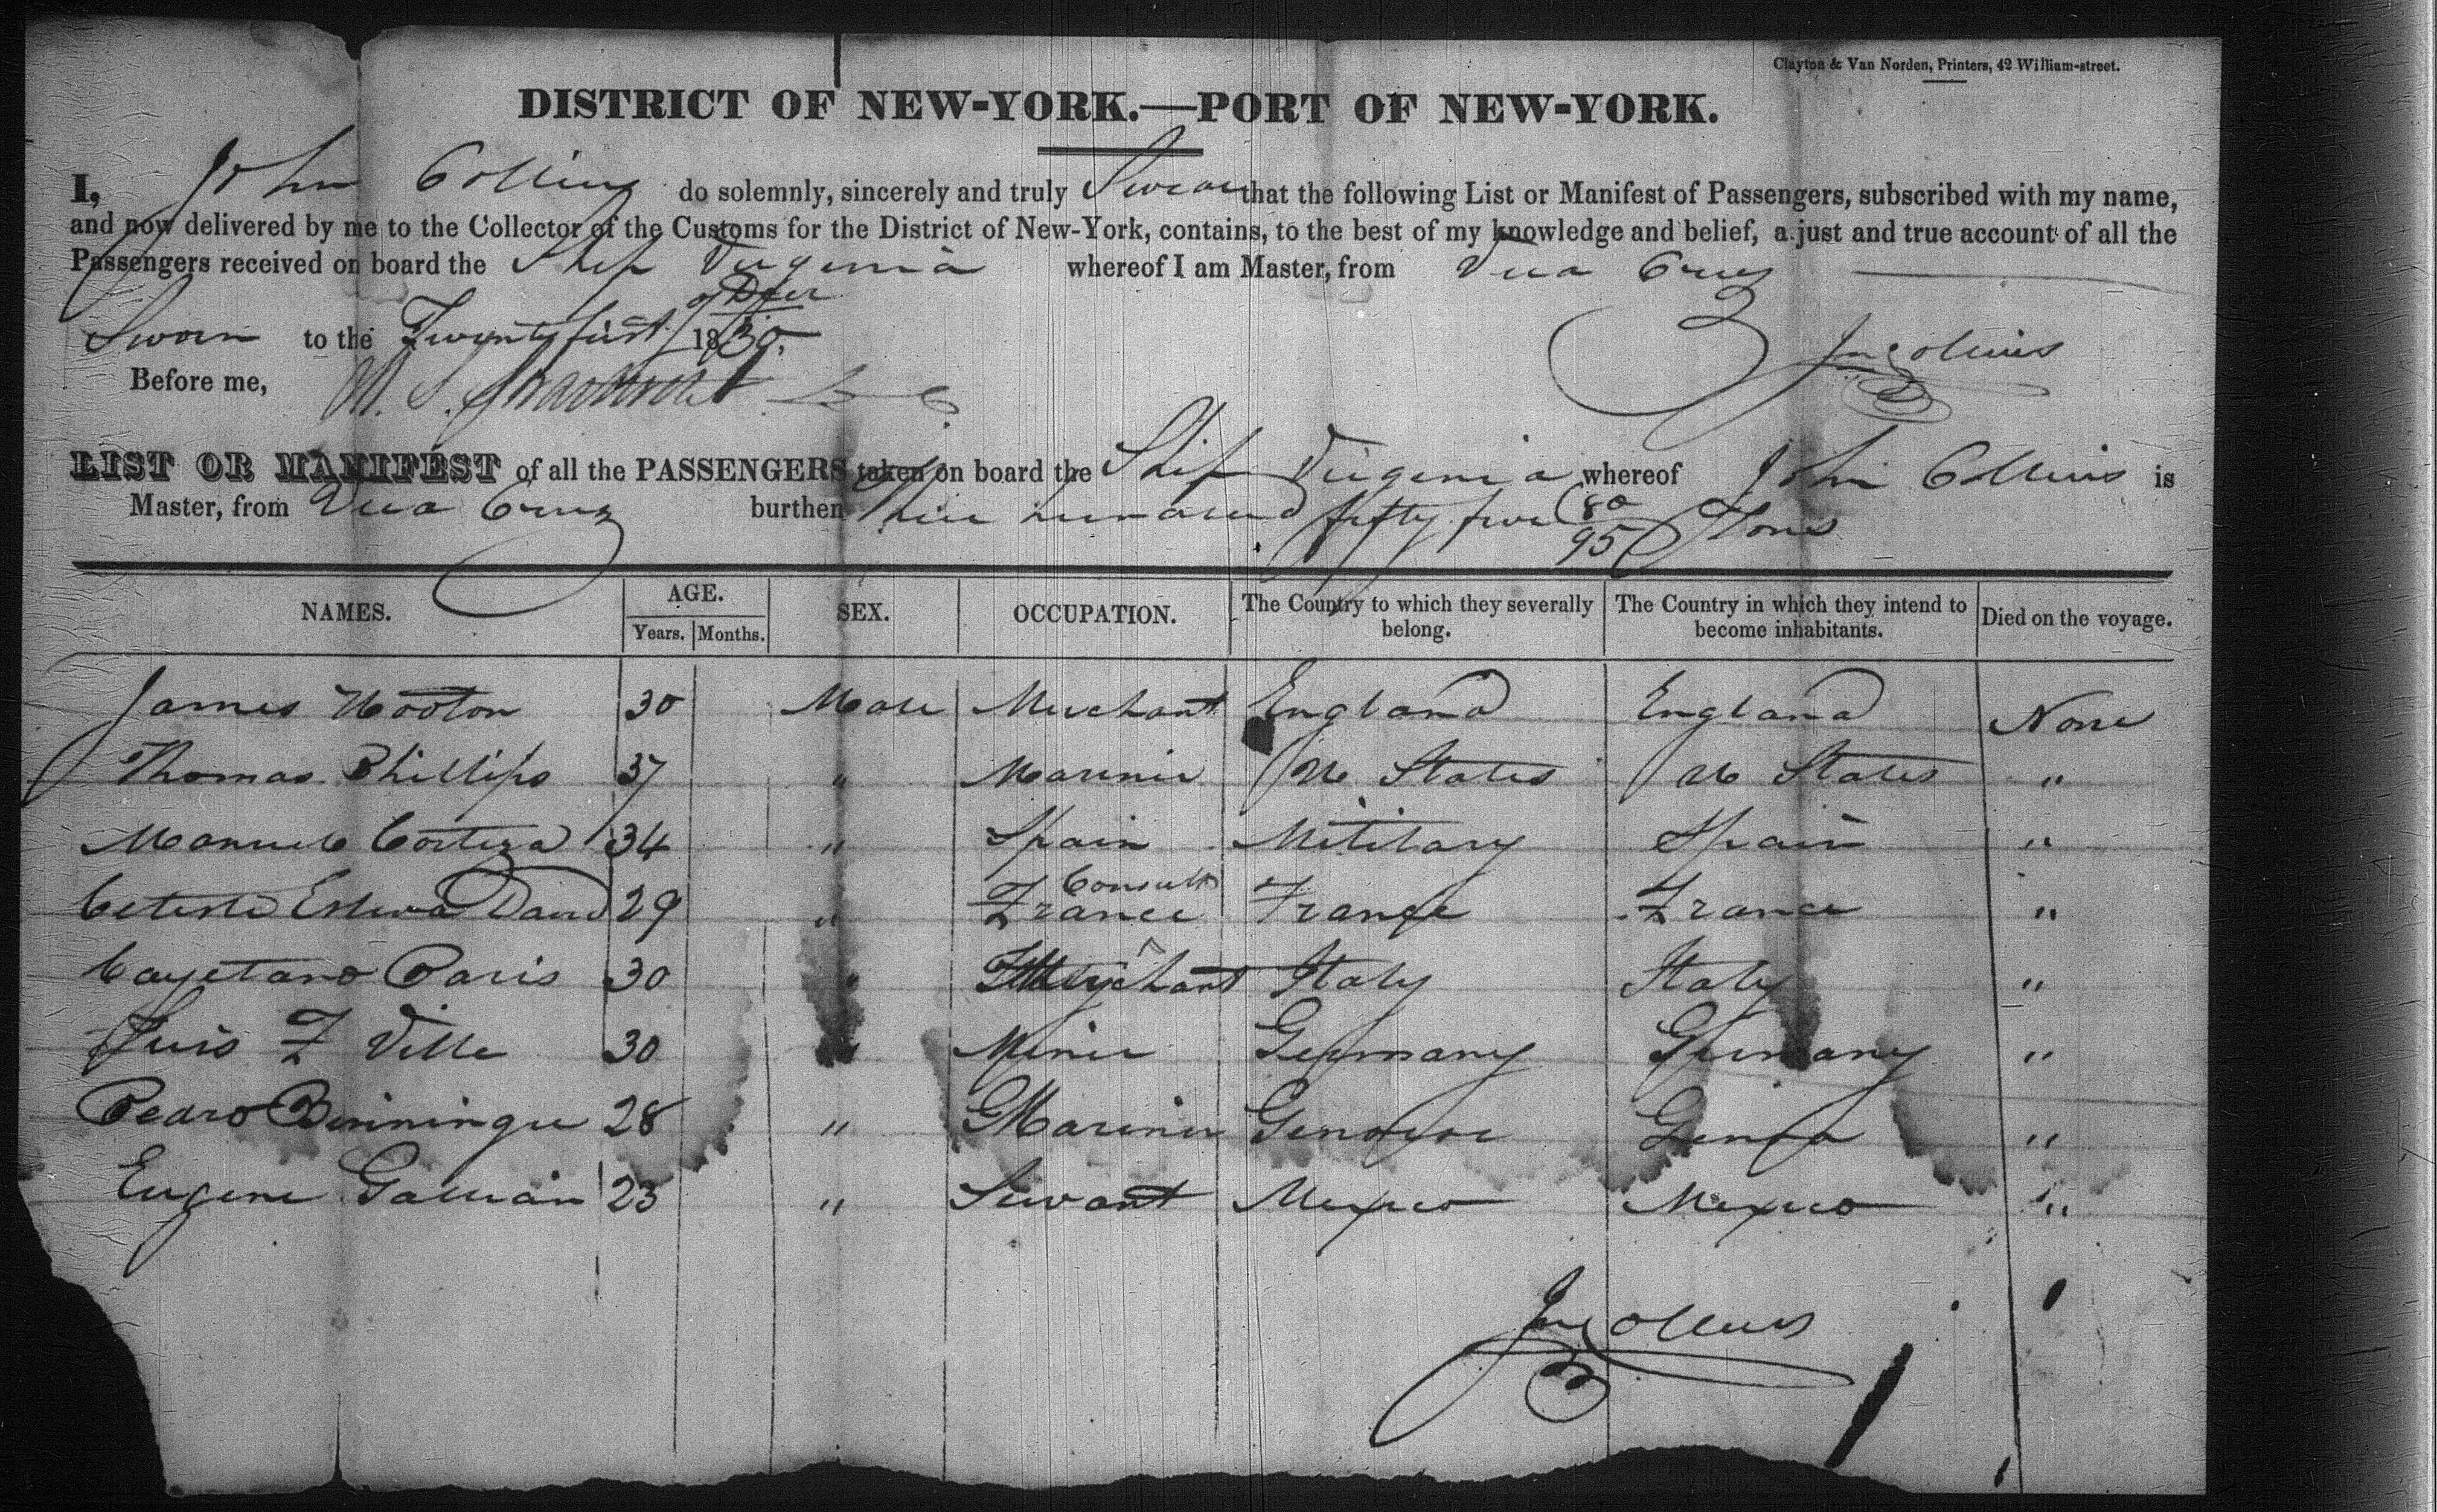 Clayton & Van Norden, Printers, 42 William-street.
DISTRICT OF NEW-YORK.—PORT OF NEW-YORK.
I, John Collins do solemnly, sincerely and truly Swear that the following List or Manifest of Passengers, subscribed with my name,
and now delivered by me to the Collector of the Customs for the District of New-York, contains, to the best of my knowledge and belief, a just and true account of all the
Passengers received on board the Ship Virginia whereof I am Master, from Vera Cruz
of Decr
Sworn to the Twenty first 1830.
Jno Collins
Before me,
LIST OR MANIFEST of all the PASSENGERS taken on board the Ship Virginia whereof John Collins is
Master, from Vera Cruz burthen hundred fifty five 80/95 Tons
NAMES. AGE. SEX. OCCUPATION. The Country to which they severally belong. The Country in which they intend to become inhabitants. Died on the voyage.
Years. Months.
James Wooton 30 Male Merchant England England None
Thomas Phillips 37 " Mariner U States U States "
Manuel Corteza 34 " Spain Military Spain "
Consul
Celeste Esteva David 29 " France France France "
Cayetano Paris 30 " Merchant Italy Italy "
Luis F Ville 30 " Miner Germany Germany "
Pedro 28 " Mariner Genoese Genoa "
Eugene 23 " Servant Mexico Mexico "
Jno Collins